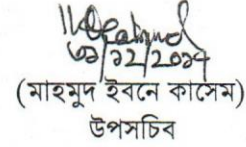 ৩১/১২/২০১৭
(মাহমুদ ইবনে কাসেম)
উপসচিব